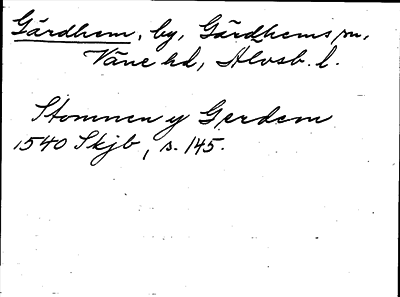 Gärdhem, by, Gärdhems sn,
Väne hd, Älvsb. l.
Stommen y Gerdem
1540 Skjb, s. 145.